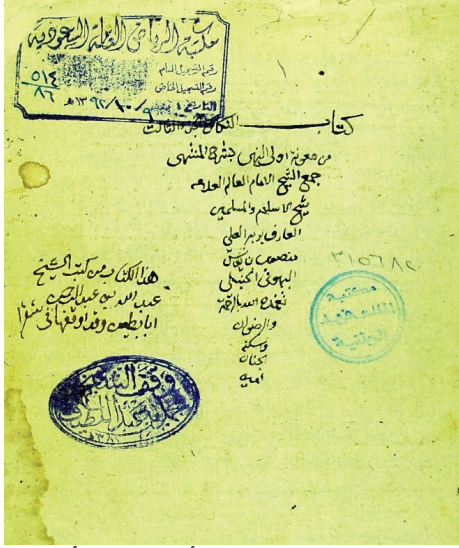 مكتبة الرياض العامة السعودية
رقم التسجيل العام
٥١٤
رقم التسجيل الخاص
٨٦
التاريخ: ٩/١٠/١٣٩٢هـ
١
كتاب النكاح الثالث
من معونة اولي النهى بشرح المنتهى
جمع الشيخ الامام العالم العلامه
شيخ الاسلام والمسلمين
العارف بربه العلي
منصور بن يونس
البهوتي الحنبلي
تغمده الله بالرحمة
والرضوان
واسكنه
الجنان
امين
هذا الكتاب من كتب الشيخ
عبد الله ابن عبد الرحمن
ابا بطين وقد اوقفها في
٣١٥٦٨٢
مكتبة
الملك فهد
الوطنية
وقف الشيخ
محمد بن عبد اللطيف
١٣٨١